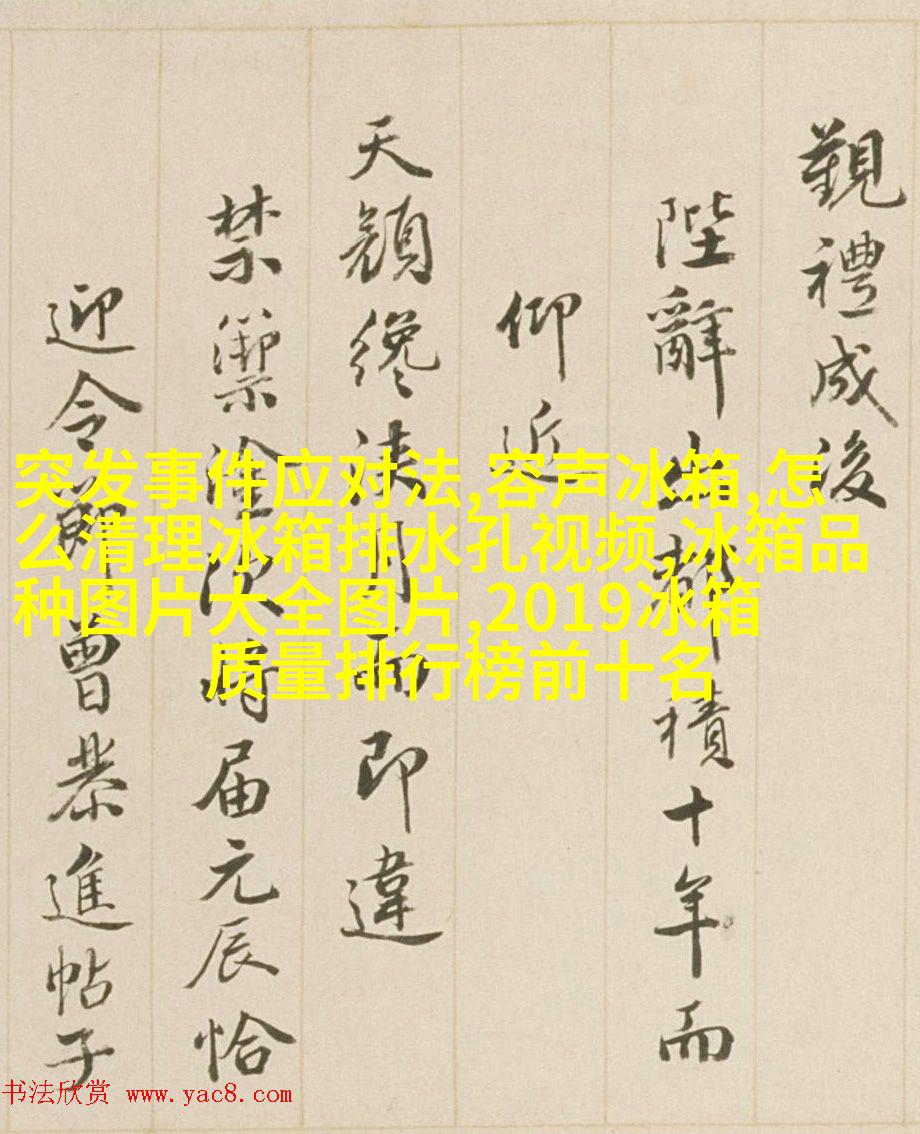 覲禮成後
陛辭出都積十年而
仰近
天顏纔浹月而即違
禁籞塗次時届元辰恰
迎令節曾恭進帖子
突发事件应对法,容声冰箱,怎
么清理冰箱排水孔视频,冰箱品
种图片大全图片,2019冰箱
质量排行榜前十名
书法欣赏 www.yac8.com